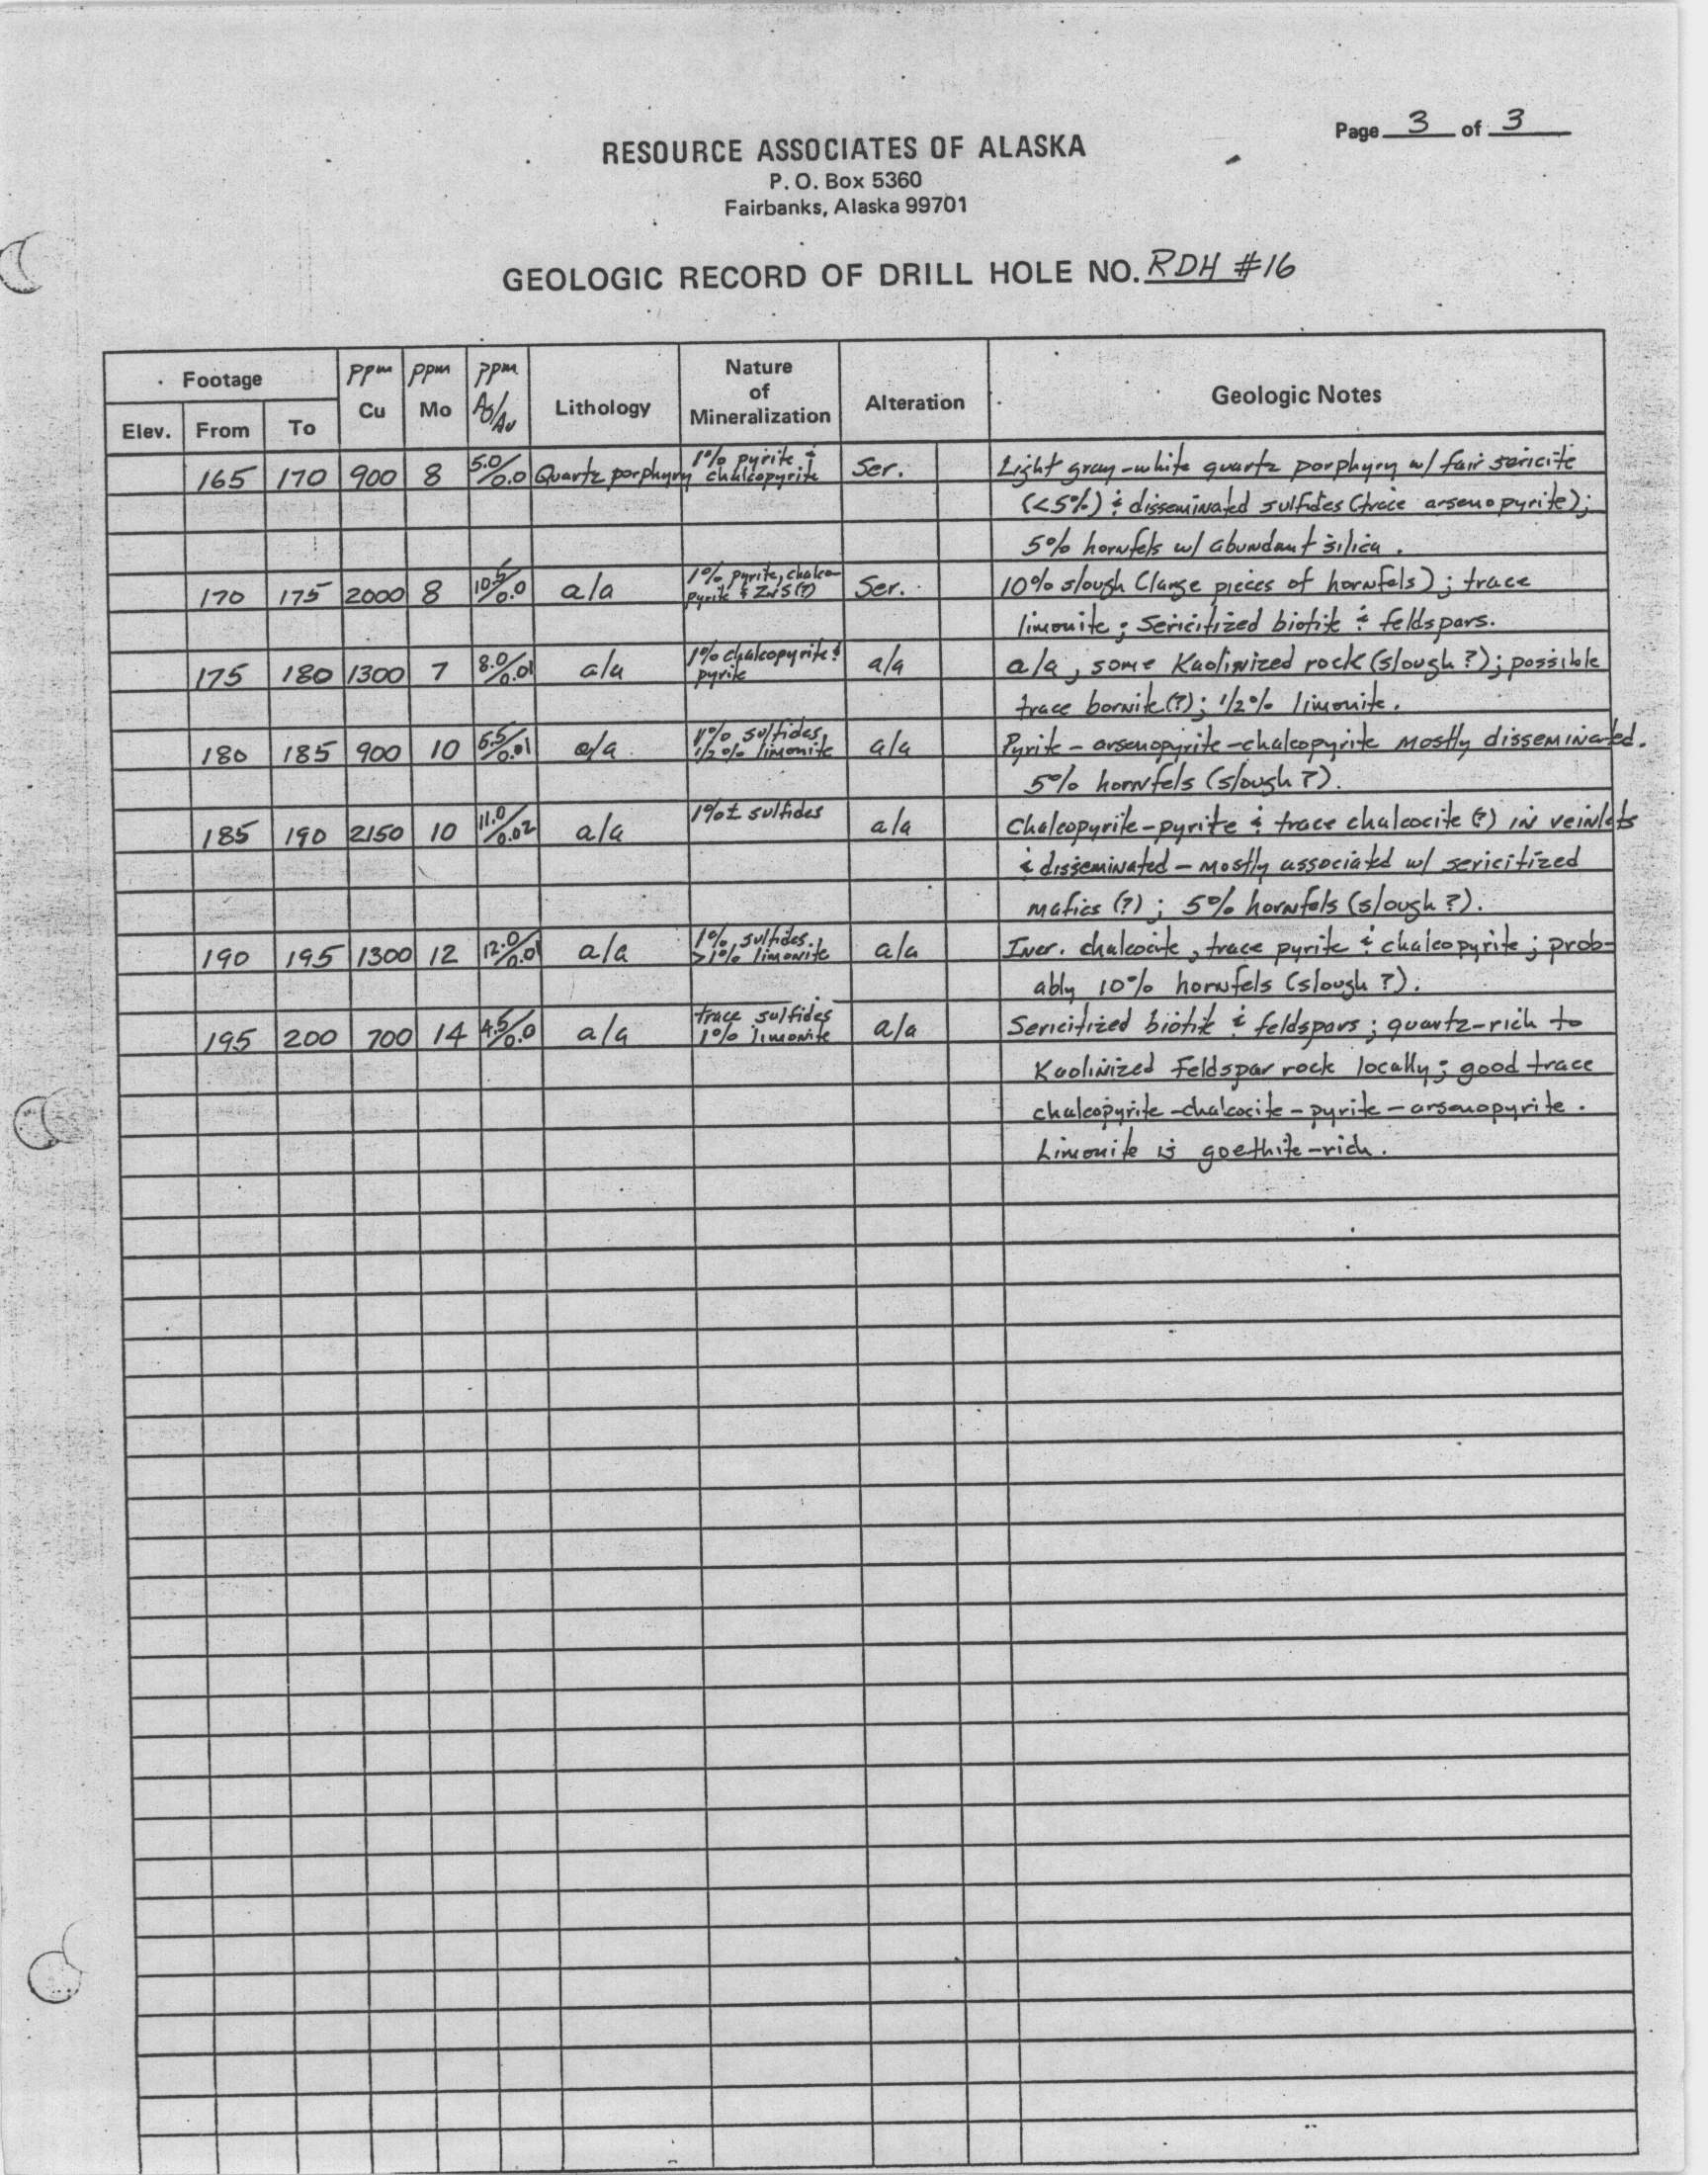 Page 3 of 3
RESOURCE ASSOCIATES OF ALASKA
P. O. Box 5360
Fairbanks, Alaska 99701
GEOLOGIC RECORD OF DRILL HOLE NO. RDH #16
Footage ppm Cu ppm Mo ppm Ag/Au Lithology Nature of Mineralization Alteration Geologic Notes
Elev. From To
165 170 900 8 5.0/0.0 Quartz porphyry 1% pyrite & chalcopyrite Ser. Light gray-white quartz porphyry w/ fair sericite
(<5%) & disseminated sulfides (trace arsenopyrite);
5% hornfels w/ abundant silica.
170 175 2000 8 10.5/0.0 a/a 1% pyrite, chalco-pyrite & ZnS(?) Ser. 10% slough (large pieces of hornfels); trace
limonite; Sericitized biotite & feldspars.
175 180 1300 7 8.0/0.01 a/a 1% chalcopyrite & pyrite a/a a/a, some Kaolinized rock (slough?); possible
trace bornite(?); 1/2% limonite.
180 185 900 10 6.5/0.01 a/a 1% sulfides, 1/2% limonite a/a Pyrite-arsenopyrite-chalcopyrite mostly disseminated.
5% hornfels (slough?).
185 190 2150 10 11.0/0.02 a/a 1%± sulfides a/a Chalcopyrite-pyrite & trace chalcocite (?) in veinlets
& disseminated - mostly associated w/ sericitized
mafics (?); 5% hornfels (slough?).
190 195 1300 12 12.0/0.01 a/a 1% sulfides. >1% limonite a/a Incr. chalcocite, trace pyrite & chalcopyrite; prob-
ably 10% hornfels (slough?).
195 200 700 14 4.5/0.0 a/a trace sulfides 1% limonite a/a Sericitized biotite & feldspars; quartz-rich to
Kaolinized Feldspar rock locally; good trace
chalcopyrite-chalcocite-pyrite-arsenopyrite.
Limonite is goethite-rich.